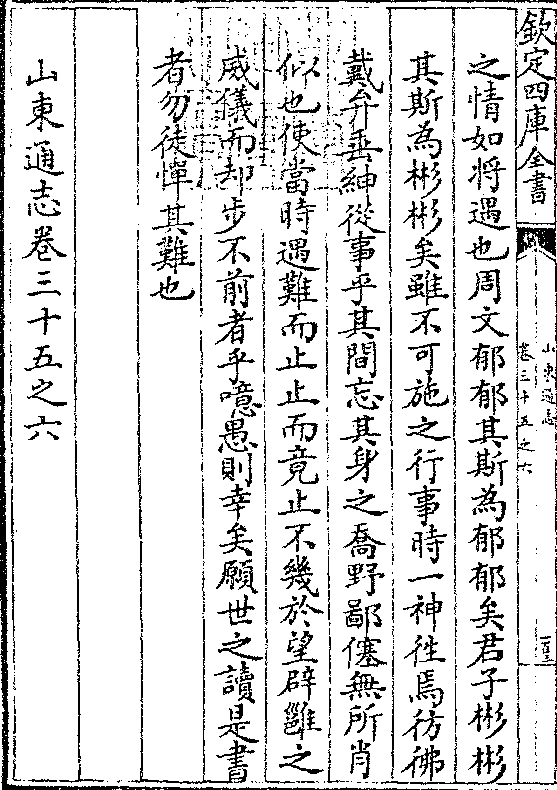 欽定四庫全書
山東通志
卷三十五之六
之情如将遇也周文郁郁其斯為郁郁矣君子彬彬
其斯為彬彬矣雖不可施之行事時一神徃焉彷彿
戴弁垂紳從事乎其間忘其身之喬野鄙僿無所肖
似也使當時遇難而止止而竟止不幾於望辟雝之
威儀而却步不前者乎噫愚則幸矣願世之讀是書
者勿徒憚其難也
山東通志卷三十五之六